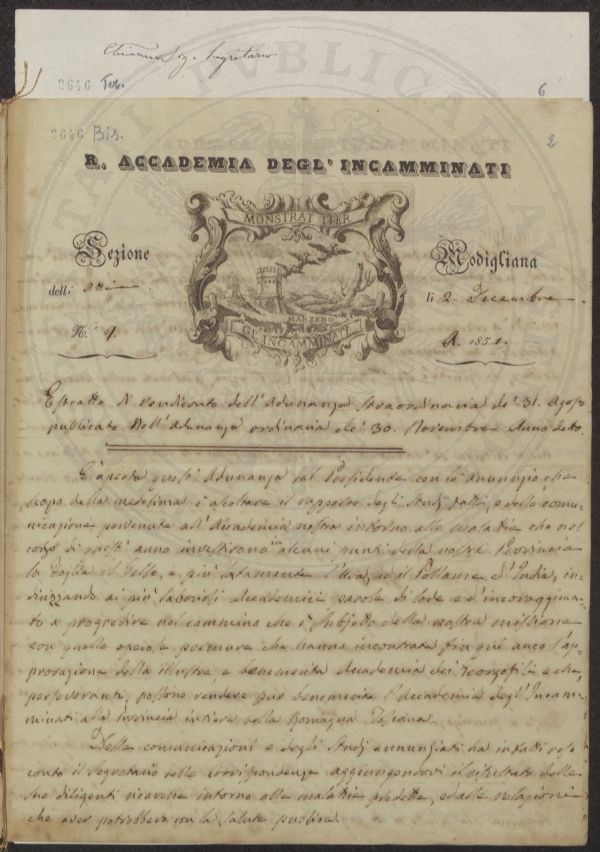 Chiarmo Sig. Segretario
2646 Ter.
6
2646 Bis.
2
R. ACCADEMIA DEGL' INCAMMINATI
MONSTRAT ITER
Sezione
Modigliana
delli Atti
li 2. Decembre
MARZENO
GL'INCAMMINATI
N. 9.
A. 1851.
Estratto di rendiconto dell'Adunanza straordinaria de' 31. Agosto
pubblicato Nell'Adunanza ordinaria de' 30. Novembre Anno detto.
È aperta quest'Adunanza dal Presidente con lo annunzio che
scopo della medesima è ascoltare il rapporto degli Studj fatti, e delle comu-
nicazione pervenute all'Accademia nostra intorno alle malatie che nel
corso di quest'anno investirono in alcuni punti della nostra Provincia
la Foglia il Gelso, e più latamente l'Uva, ed il Pollame d'India, in-
dirizzando ai più laboriosi Accademici parole di lode e d'incoraggima-
to a progredire nel cammino che è subjetto della nostra missione
con quelle operose premure che hanno incontrata fin qui anco l'ap-
provazione della illustre, e benemerita Accademia dei Georgofili e che,
perseveranti, possono rendere pur benemerita l'Accademia degl'Incam-
minati alla Provincia intiera della Romagna Toscana.
Delle comunicazioni e degli Studj annunziati ha infatti reso
conto il Segretario delle Corrispondenze aggiungendovi il risultato delle
sue diligenti ricerche intorno alle malatie predette, ed alle relazioni
che aver potrebbero con la salute pubblica.